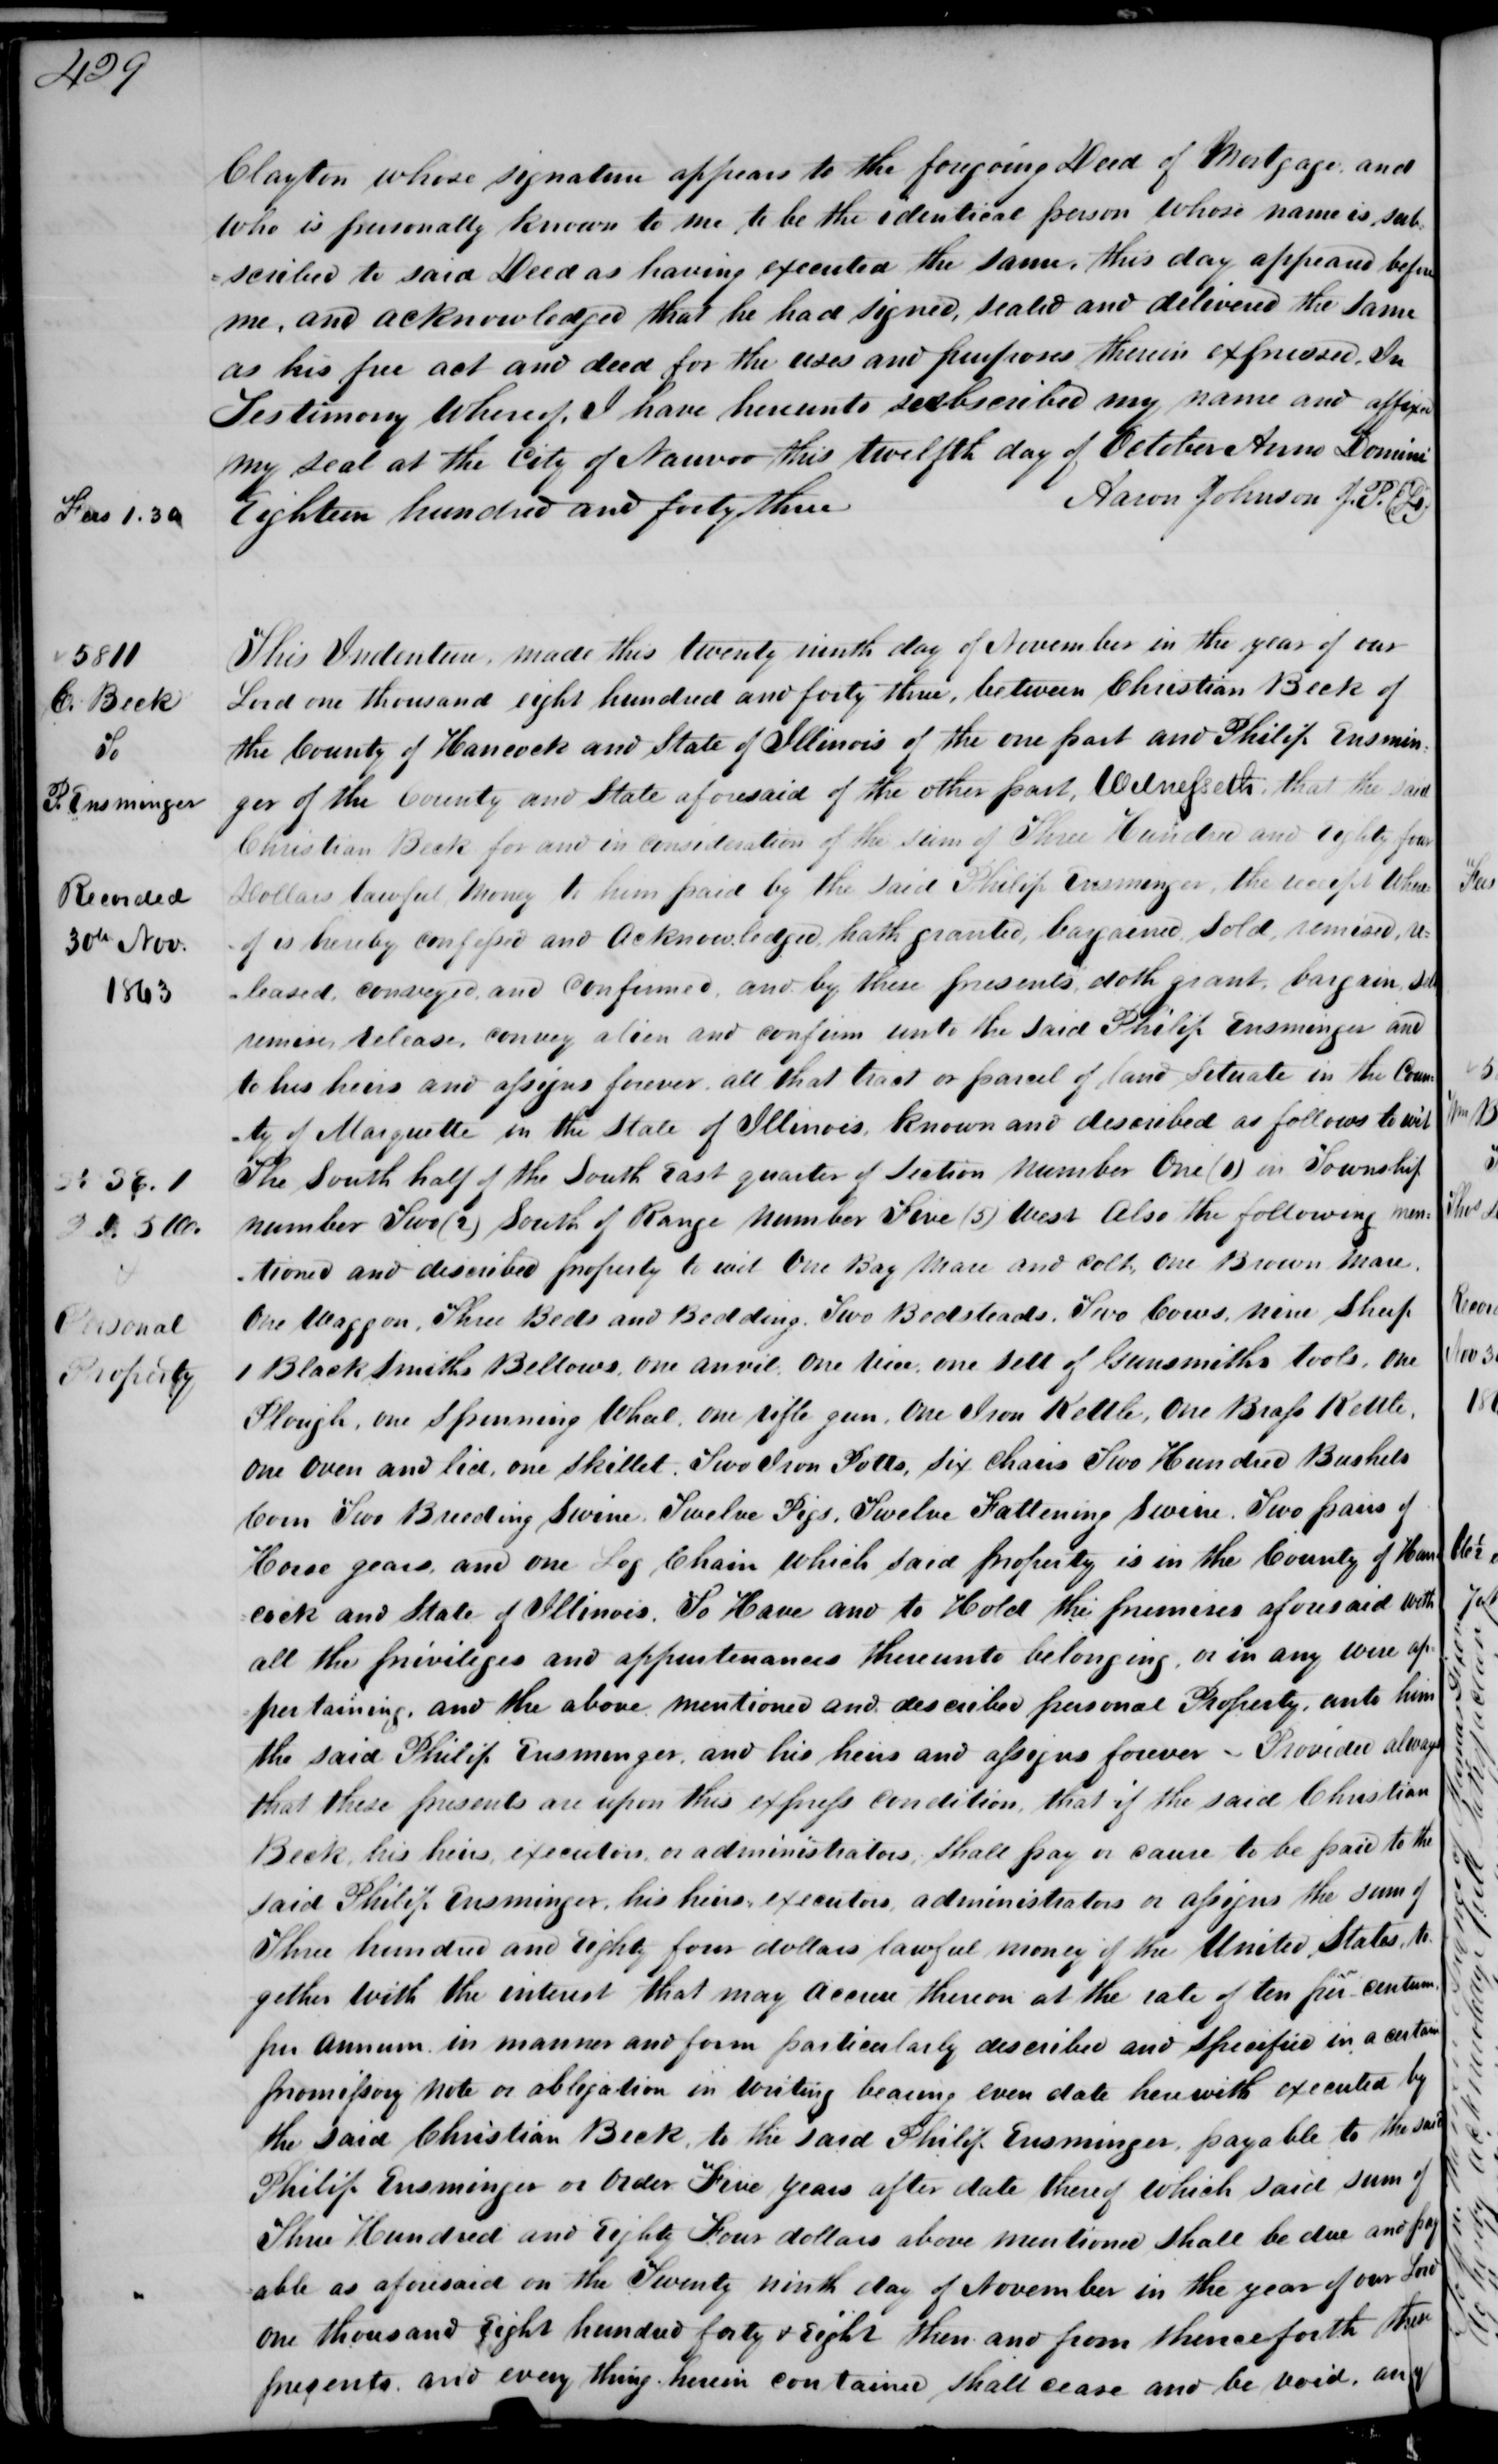 429
Clayton whose signature appears to the foregoing Deed of Mortgage, and
who is personally known to me to be the identical person whose name is sub-
=scribed to said Deed as having executed the same, this day appeared before
me, and acknowledged that he had signed, sealed and delivered the same
as his free act and deed for the uses and purposes therein expressed. In
Testimony Whereof, I have hereunto subscribed my name and affixed
my seal at the City of Nauvoo this twelfth day of October Anno Domini
Fees 1.30 Eighteen hundred and forty three Aaron Johnson J.P. (LS)
5811
C. Beck
To
P. Ensminger
Recorded
30th Nov.
1843
This Indenture, made this twenty ninth day of November in the year of our
Lord one thousand eight hundred and forty three, between Christian Beck of
the County of Hancock and State of Illinois of the one part and Philip Ensmin-
ger of the County and State aforesaid of the other part, Witnesseth, that the said
Christian Beck for and in consideration of the sum of Three Hundred and Eighty four
Dollars lawful Money to him paid by the said Philip Ensminger, the receipt Where-
-of is hereby confessed and Acknowledged, hath granted, bargained, Sold, remised, re=
-leased, conveyed, and Confirmed, and by these presents, doth grant, bargain, sell
remise, release, convey alien and confirm unto the said Philip Ensminger and
to his heirs and assigns forever, all that tract or parcel of land Situate in the Coun
-ty of Marquette in the State of Illinois, known and described as follows to wit
S½ SE. 1
2 S. 5 W.
&
Personal
Property
The South half of the South East quarter of Section Number One (1) in Township
number Two (2) South of Range Number Five (5) West Also the following men-
-tioned and described property to wit One Bay Mare and colt, One Brown Mare,
One Waggon, Three Beds and Bedding, Two Bedsteads, Two Cows, nine Sheep
1 Black Smiths Bellows, one anvil, One Vice, one Sett of Gunsmiths tools, One
Plough, one Spinning Wheel, one rifle gun, One Iron Kettle, One Brass Kettle,
One Oven and lid, one Skillet, Two Iron Potts, Six Chairs Two Hundred Bushels
Corn Two Breeding Swine, Twelve Pigs, Twelve Fattening Swine, Two pairs of
Horse gears, and one Log Chain which said property is in the County of Han
=cock and State of Illinois, To Have and to Hold the premises aforesaid with
all the privileges and appurtenances thereunto belonging, or in any wise ap-
=pertaining, and the above mentioned and described personal Property, unto him
the said Philip Ensminger, and his heirs and assigns forever – Provided always
that these presents are upon this express Condition, that if the said Christian
Beck, his heirs, executors, or administrators, shall pay or cause to be paid to the
said Philip Ensminger, his heirs, executors, administrators or assigns the sum of
Three hundred and Eighty four dollars lawful money of the United States, to-
gether with the interest that may accrue thereon at the rate of ten per centum
per annum in manner and form particularly described and Specified in a certain
promissory Note or obligation in Writing bearing even date herewith executed by
the said Christian Beck, to the said Philip Ensminger, payable to the said
Philip Ensminger or Order Five years after date thereof which said sum of
Three Hundred and Eighty Four dollars above mentioned shall be due and pay
-able as aforesaid on the Twenty ninth day of November in the year of our Lord
One thousand Eight hundred forty & Eight then and from thenceforth these
presents, and every thing herein contained shall cease and be void, any